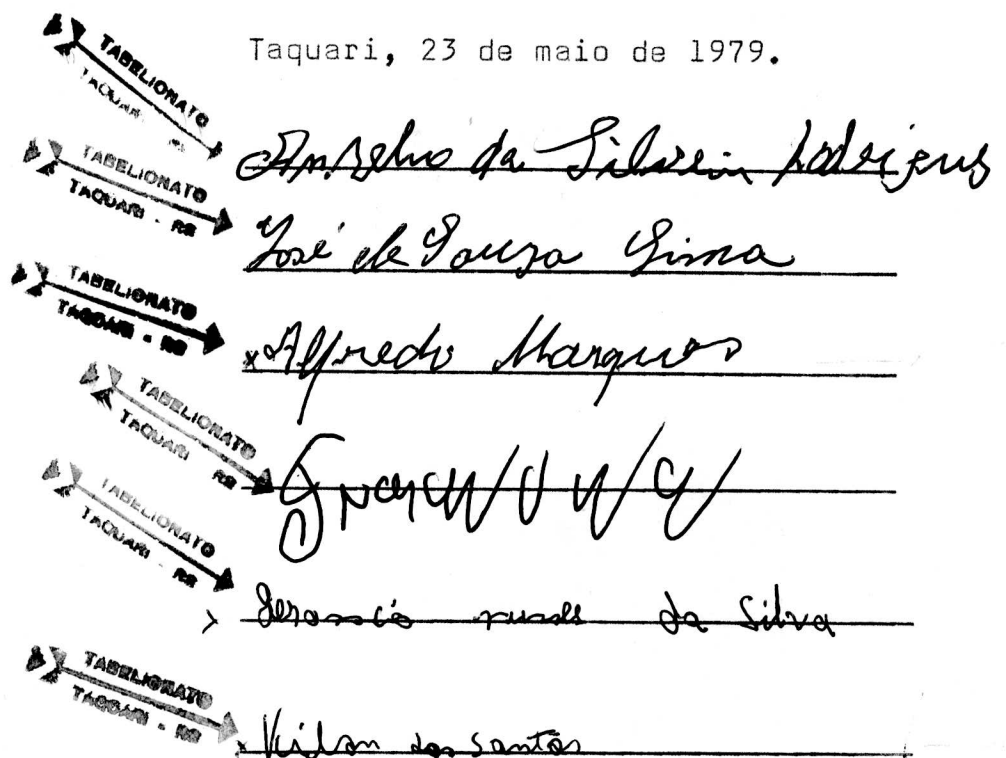 Taquari, 23 de maio de 1979.
TABELIONATO
TAQUARI RS
Anselmo da Silveira Rodrigues
TABELIONATO
TAQUARI - RS
José de Souza Lima
TABELIONATO
TAQUARI - RS
x Alfredo Marques
TABELIONATO
TAQUARI RS
TABELIONATO
TAQUARI - RS
da Silva
TABELIONATO
TAQUARI - RS
x dos Santos